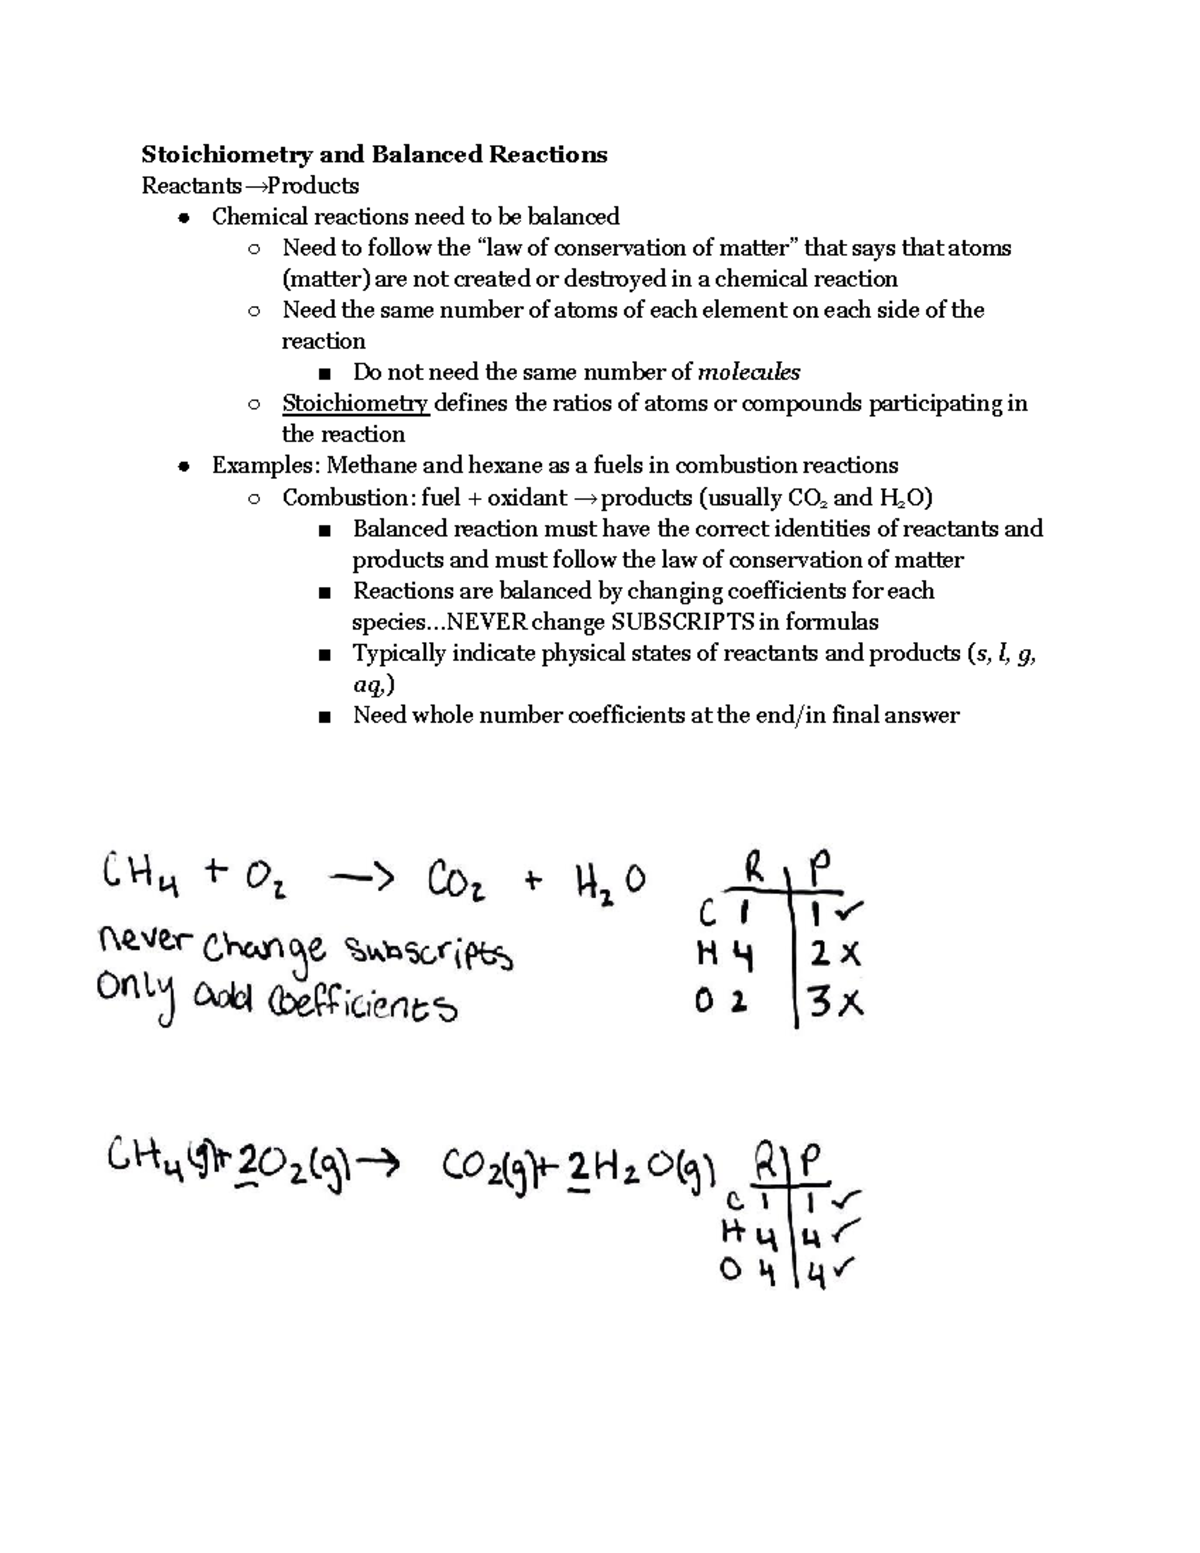 Stoichiometry and Balanced Reactions
Reactants→Products
● Chemical reactions need to be balanced
○ Need to follow the “law of conservation of matter” that says that atoms
(matter) are not created or destroyed in a chemical reaction
○ Need the same number of atoms of each element on each side of the
reaction
■ Do not need the same number of molecules
○ Stoichiometry defines the ratios of atoms or compounds participating in
the reaction
● Examples: Methane and hexane as a fuels in combustion reactions
○ Combustion: fuel + oxidant → products (usually CO₂ and H₂O)
■ Balanced reaction must have the correct identities of reactants and
products and must follow the law of conservation of matter
■ Reactions are balanced by changing coefficients for each
species…NEVER change SUBSCRIPTS in formulas
■ Typically indicate physical states of reactants and products (s, l, g,
aq,)
■ Need whole number coefficients at the end/in final answer
CH₄ + O₂ → CO₂ + H₂O
never change subscripts
only add coefficients
R | P
C 1 | 1 ✓
H 4 | 2 x
O 2 | 3 x
CH₄(g)+ 2O₂(g) → CO₂(g)+ 2H₂O(g)
R | P
C 1 | 1 ✓
H 4 | 4 ✓
O 4 | 4 ✓